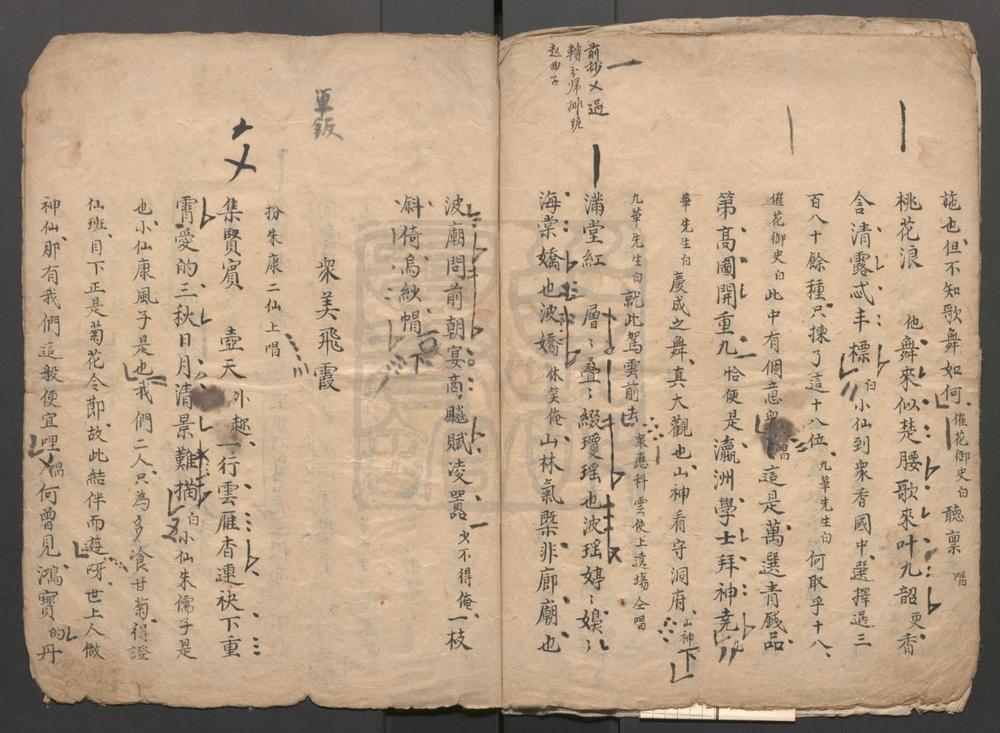 旎也但不知歌舞如何催花御史白聽稟唱
桃花浪 他舞來似楚腰歌來叶九韶更香
含清露忒丰標白小仙到衆香國中選擇過三
百八十餘種只揀了這十八位九華先生白何取乎十八
催花御史白此中有個意思唱這是萬選青錢品
第高圃開重九恰便是瀛洲學士拜神堯
華先生白慶成之舞真大觀也山神看守洞府山神下
九華先生白就此駕雲前去衆應科雲使上遶場仝唱
滿堂紅 層〻叠〻綴瓊瑤也波瑤婷〻嬝〻
海棠嬌也波嬌休笑俺山林氣槩非廊廟也
前抄 過
轉 歸排
起曲子
波廟問前朝宴高 賦凌嚣少不得俺一枝
斜倚烏紗帽
衆美飛霞
扮朱康二仙上唱
單皈
集賢賓 壺天外趣一行雲雁杳連袂下重
霄愛的三秋日月清景難描白小仙朱儒子是
也小仙康風子是也我們二人只為多飡甘菊得證
仙班目下正是菊花令節故此結伴而遊呀世上人做
神仙那有我們這般便宜哩唱何曾見鴻寳的丹